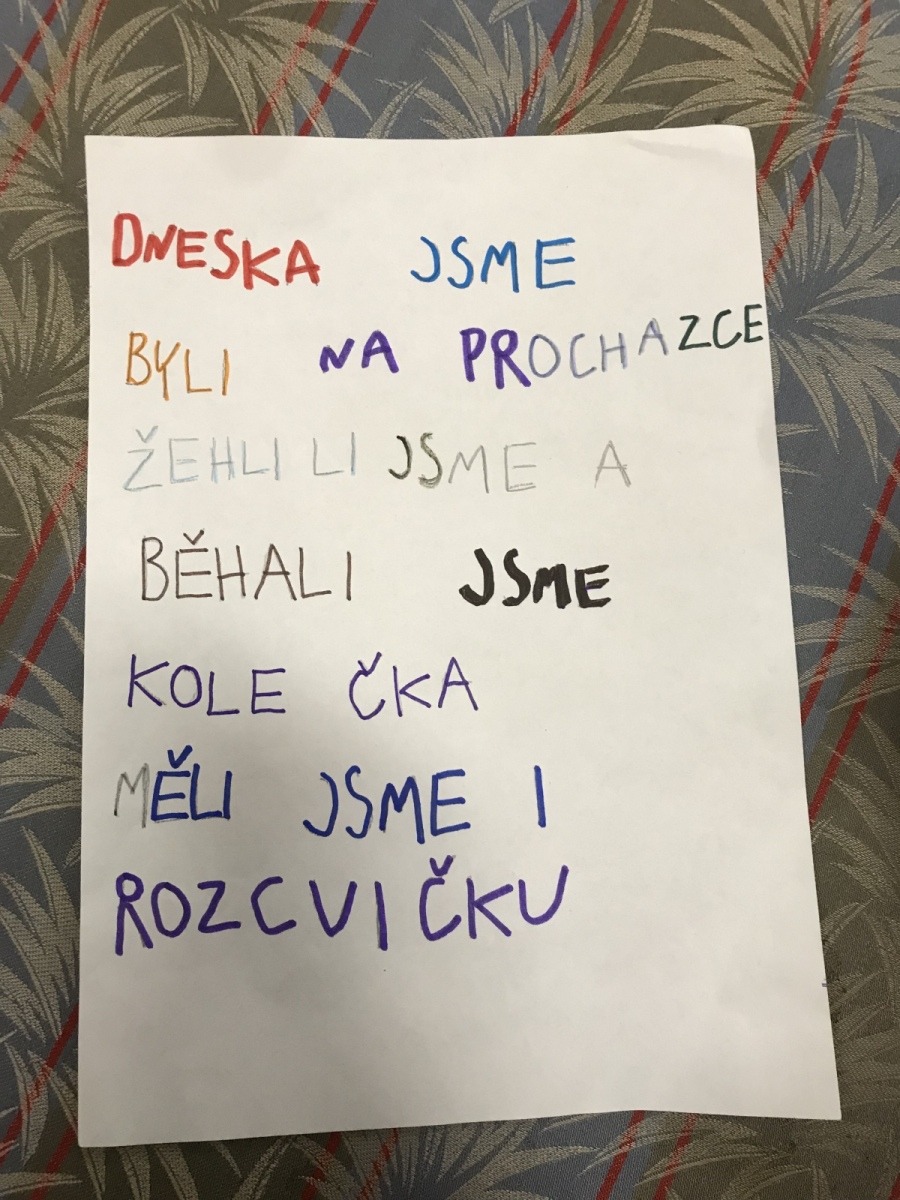 DNESKA JSME
BYLI NA PROCHAZCE
ŽEHLI LI JSME A
BĚHALI JSME
KOLE ČKA
MĚLI JSME I
ROZCVIČKU